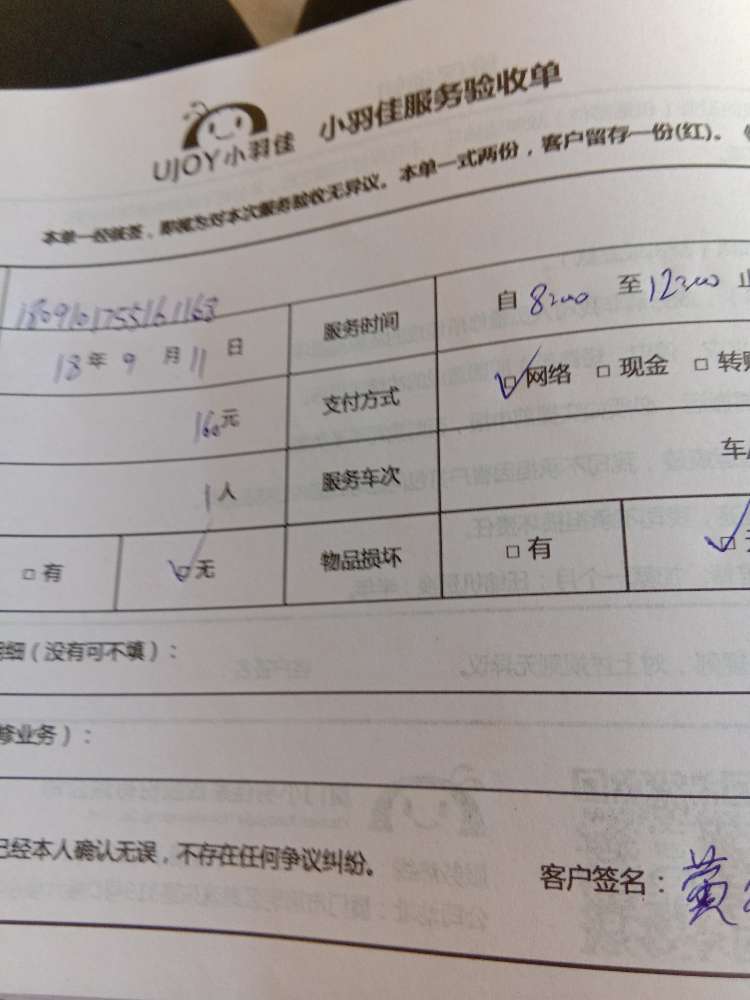 UJOY小羽佳 小羽佳服务验收单
本单一经签签，即视为对本次服务验收无异议。本单一式两份，客户留存一份(红)。
1809101755161163 服务时间 自 8:00 至 12:00 止
18 年 9 月 11 日
160元 支付方式 网络 现金 转账
1人 服务车次
有 无 物品损坏 有
明细（没有可不填）：
修业务）：
已经本人确认无误，不存在任何争议纠纷。
客户签名： 黄